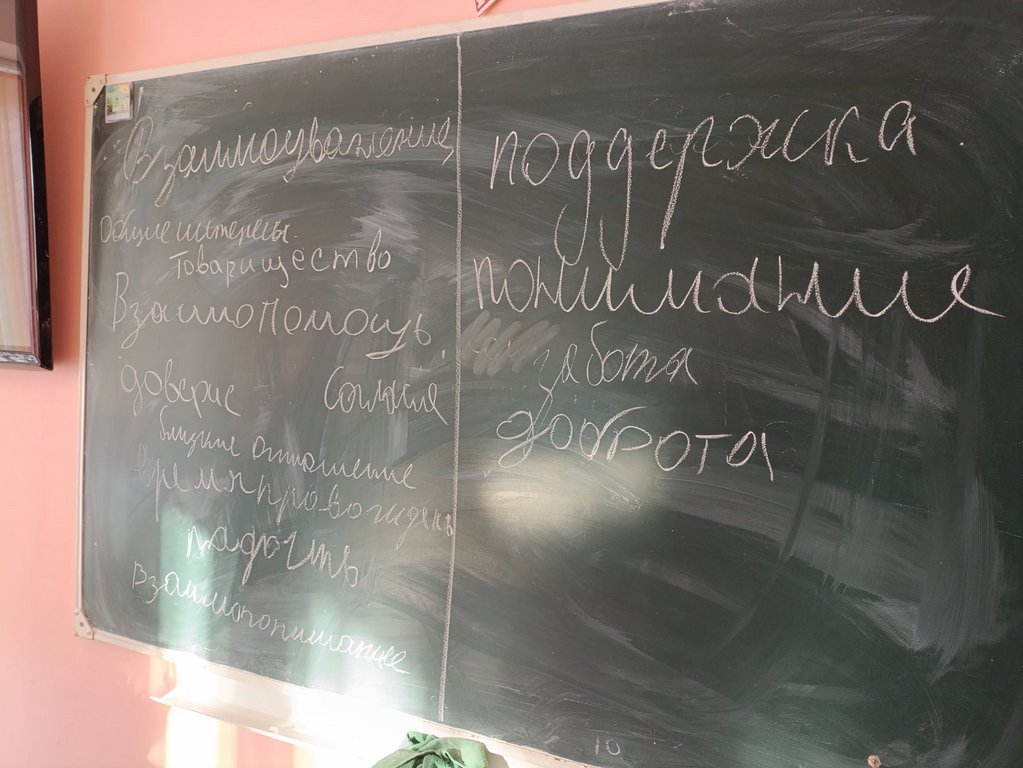 Взаимоуважение
Общие интересы
товарищество
Взаимопомощь
доверие
близкие отношение
времяпровождень
радость
взаимопонимание
поддержка
понимание
забота
доброта
10